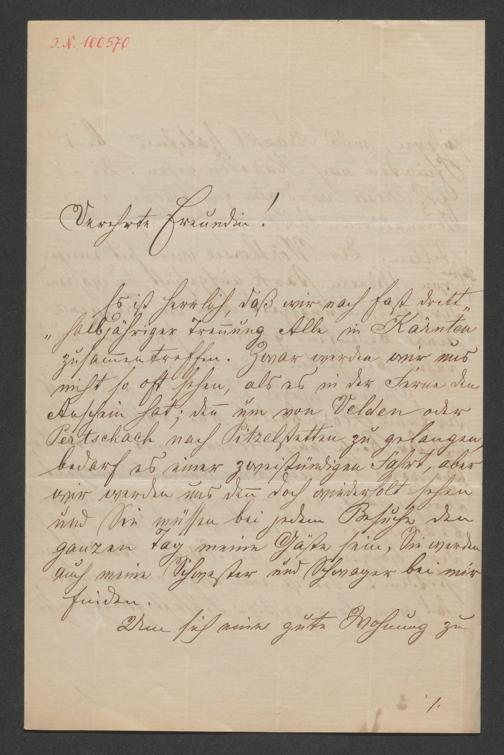 I.N. 100570
Verehrte Freundin!
Es ist herrlich, daß wir nach fast dritt-
halbjähriger Trennung Alle in Kärnten
zusammentreffen. Zwar werden wir uns
nicht so oft sehen, als es in der Ferne den
Anschein hat; den um von Velden oder
Pertschach nach Pitzelstetten zu gelangen,
bedarf es einer zweistündigen Fahrt, aber
wir werden uns den doch wiederholt sehen
und Sie müssen bei jedem Besuche den
ganzen Tag meine Gäste sein. Sie werden
auch meine Schwester und Schwager bei mir
finden.
Um sich eine gute Wohnung zu
./.